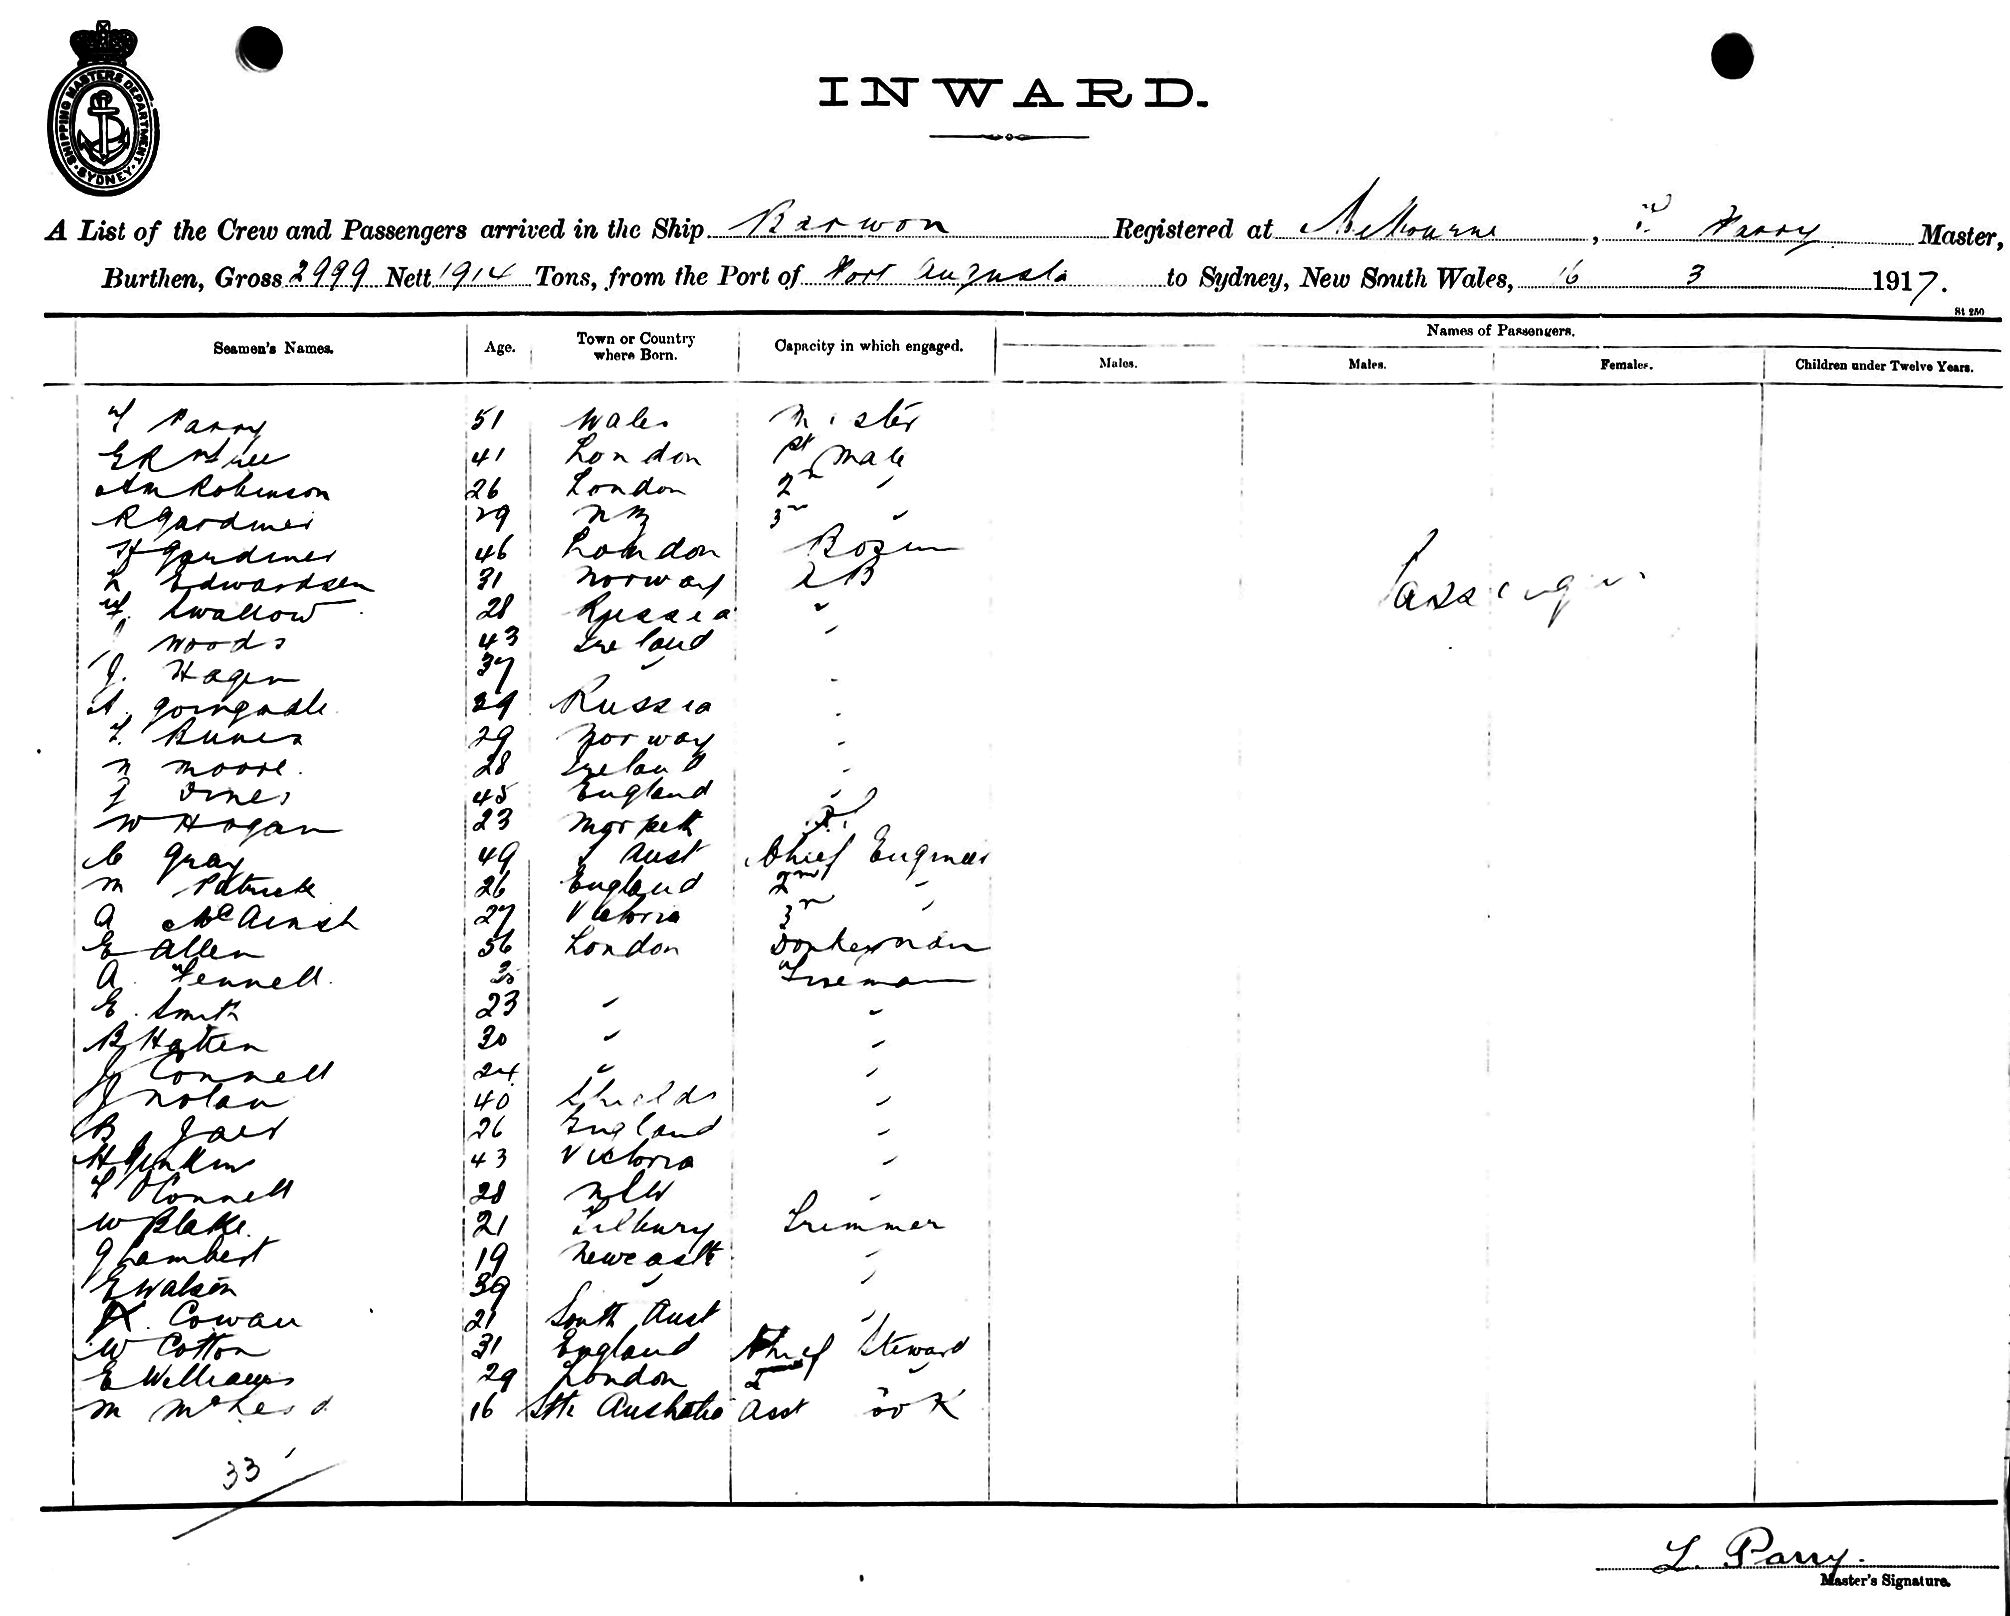 SHIPPING MASTERS DEPARTMENT · SYDNEY ·
INWARD.
A List of the Crew and Passengers arrived in the Ship Barwon Registered at Melbourne, Parry Master,
Burthen, Gross 2999 Nett 1914 Tons, from the Port of Port Augusta to Sydney, New South Wales, 16 3 1917.
St 250
Seamen's Names. Age. Town or Country where Born. Capacity in which engaged. Names of Passengers.
Males. Males. Females. Children under Twelve Years.
Parry 51 Wales Master
E R 41 London 1st Mate
Am Robinson 26 London 2n "
R Gardiner 29 NZ 3r "
H Gardiner 46 London Bosun
Edwardsen 31 Norway AB
Swallow 28 Russia "
J Woods 43 Ireland "
J. Hagen 37 " "
A. 29 Russia "
29 Norway "
N Moore. 28 Ireland "
J 45 England "
W Hogan 23 Morpeth
C Gray 49 S Aust Chief Engineer
M Patrick 26 England 2nd "
A McAinsh 27 Victoria 3r "
E Allen 56 London Donkeyman
A. Fennell. Fireman
E. Smith 23 " "
B Hatten 30 " "
J Connell 24 " "
J Nolan 40 Shields "
B 26 England "
H Jenkins 43 Victoria "
O'Connell 28 NSW "
W Blake. 21 Tilbury Trimmer
J Lambert 19 Newcastle "
E Watson 39 " "
Cowan 21 South Aust "
W Cotton 31 England Chief Steward
E Williams 29 London 2 "
M McLeod 16 Sth Australia Asst Cook
Passengers
33
L. Parry.
Master's Signature.